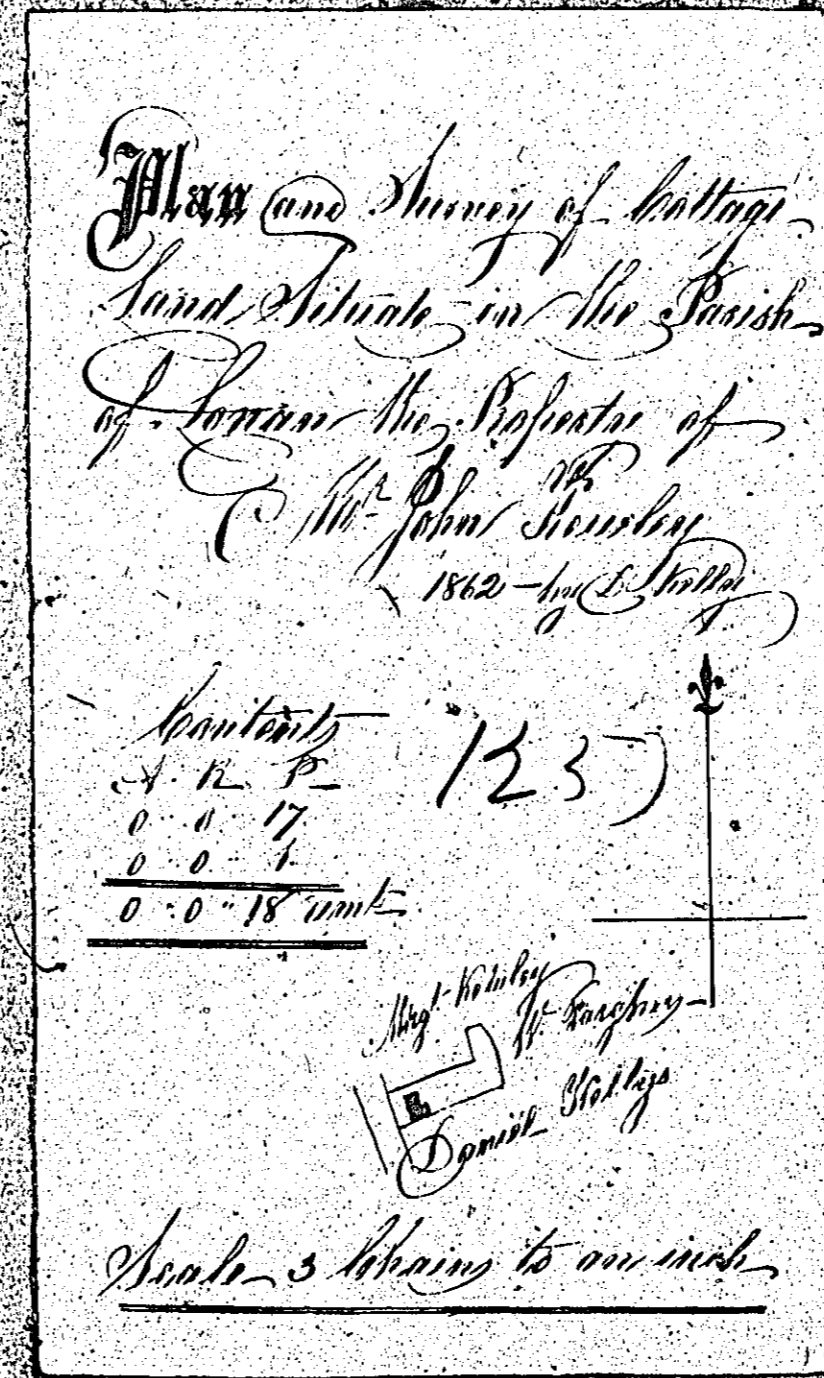 Plan and Survey of Cottage
Land Situate in the Parish
of Lonan the Propertu of
Mr John Kewley
1862 - by D Kelly
Contents
A R P
0 .. 0 .. 17
0 .. 0 .. 1
0 .. 0 .. 18
Margt Kewley
W Faragher
Daniel Kellys
Scale 3 Chains to an inch